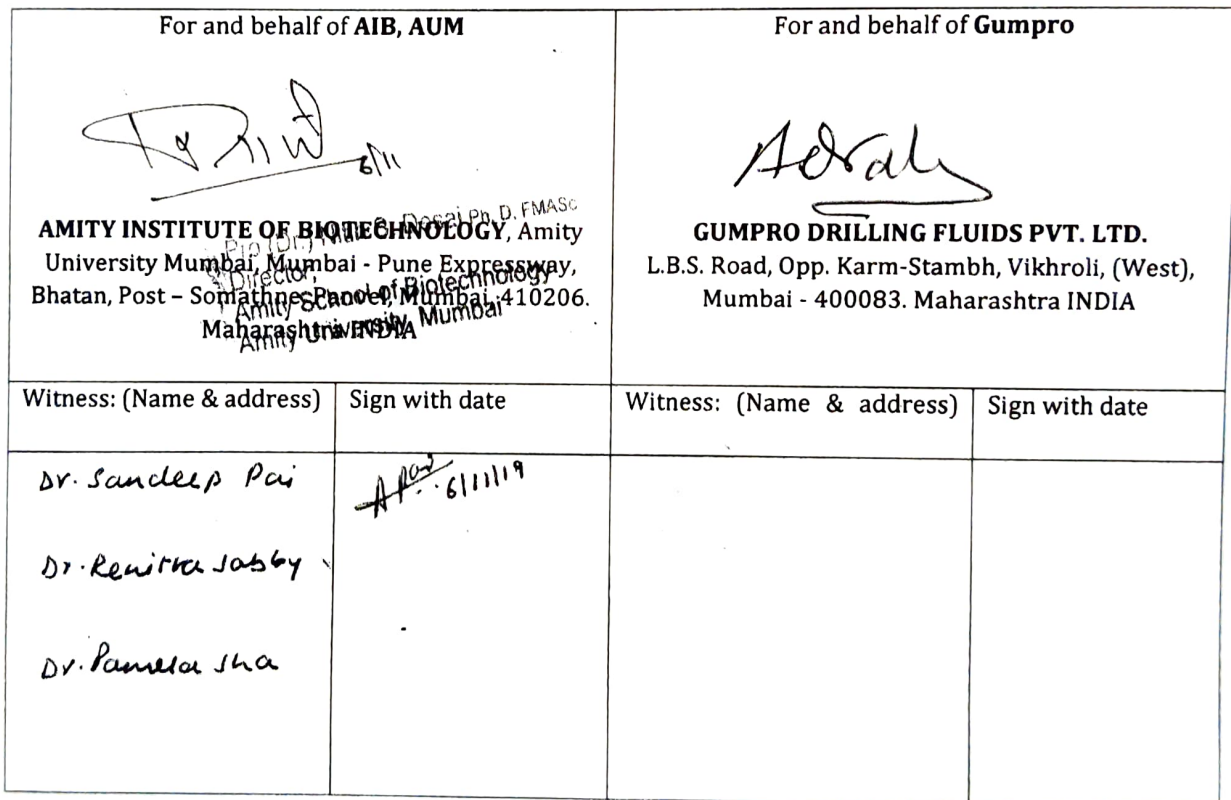 For and behalf of AIB, AUM
6/11
AMITY INSTITUTE OF BIOTECHNOLOGY, Amity
University Mumbai, Mumbai - Pune Expressway,
Bhatan, Post – Somathne, Panvel, Mumbai, 410206.
Maharashtra INDIA
Desai Ph. D. FMASc
Director,
Amity School of Biotechnology
Amity University, Mumbai
For and behalf of Gumpro
GUMPRO DRILLING FLUIDS PVT. LTD.
L.B.S. Road, Opp. Karm-Stambh, Vikhroli, (West),
Mumbai - 400083. Maharashtra INDIA
Witness: (Name & address)
Sign with date
Witness: (Name & address)
Sign with date
Dr. Sandeep Pai
6/11/19
Dr. Renitta Jobby
Dr. Pamela Jha